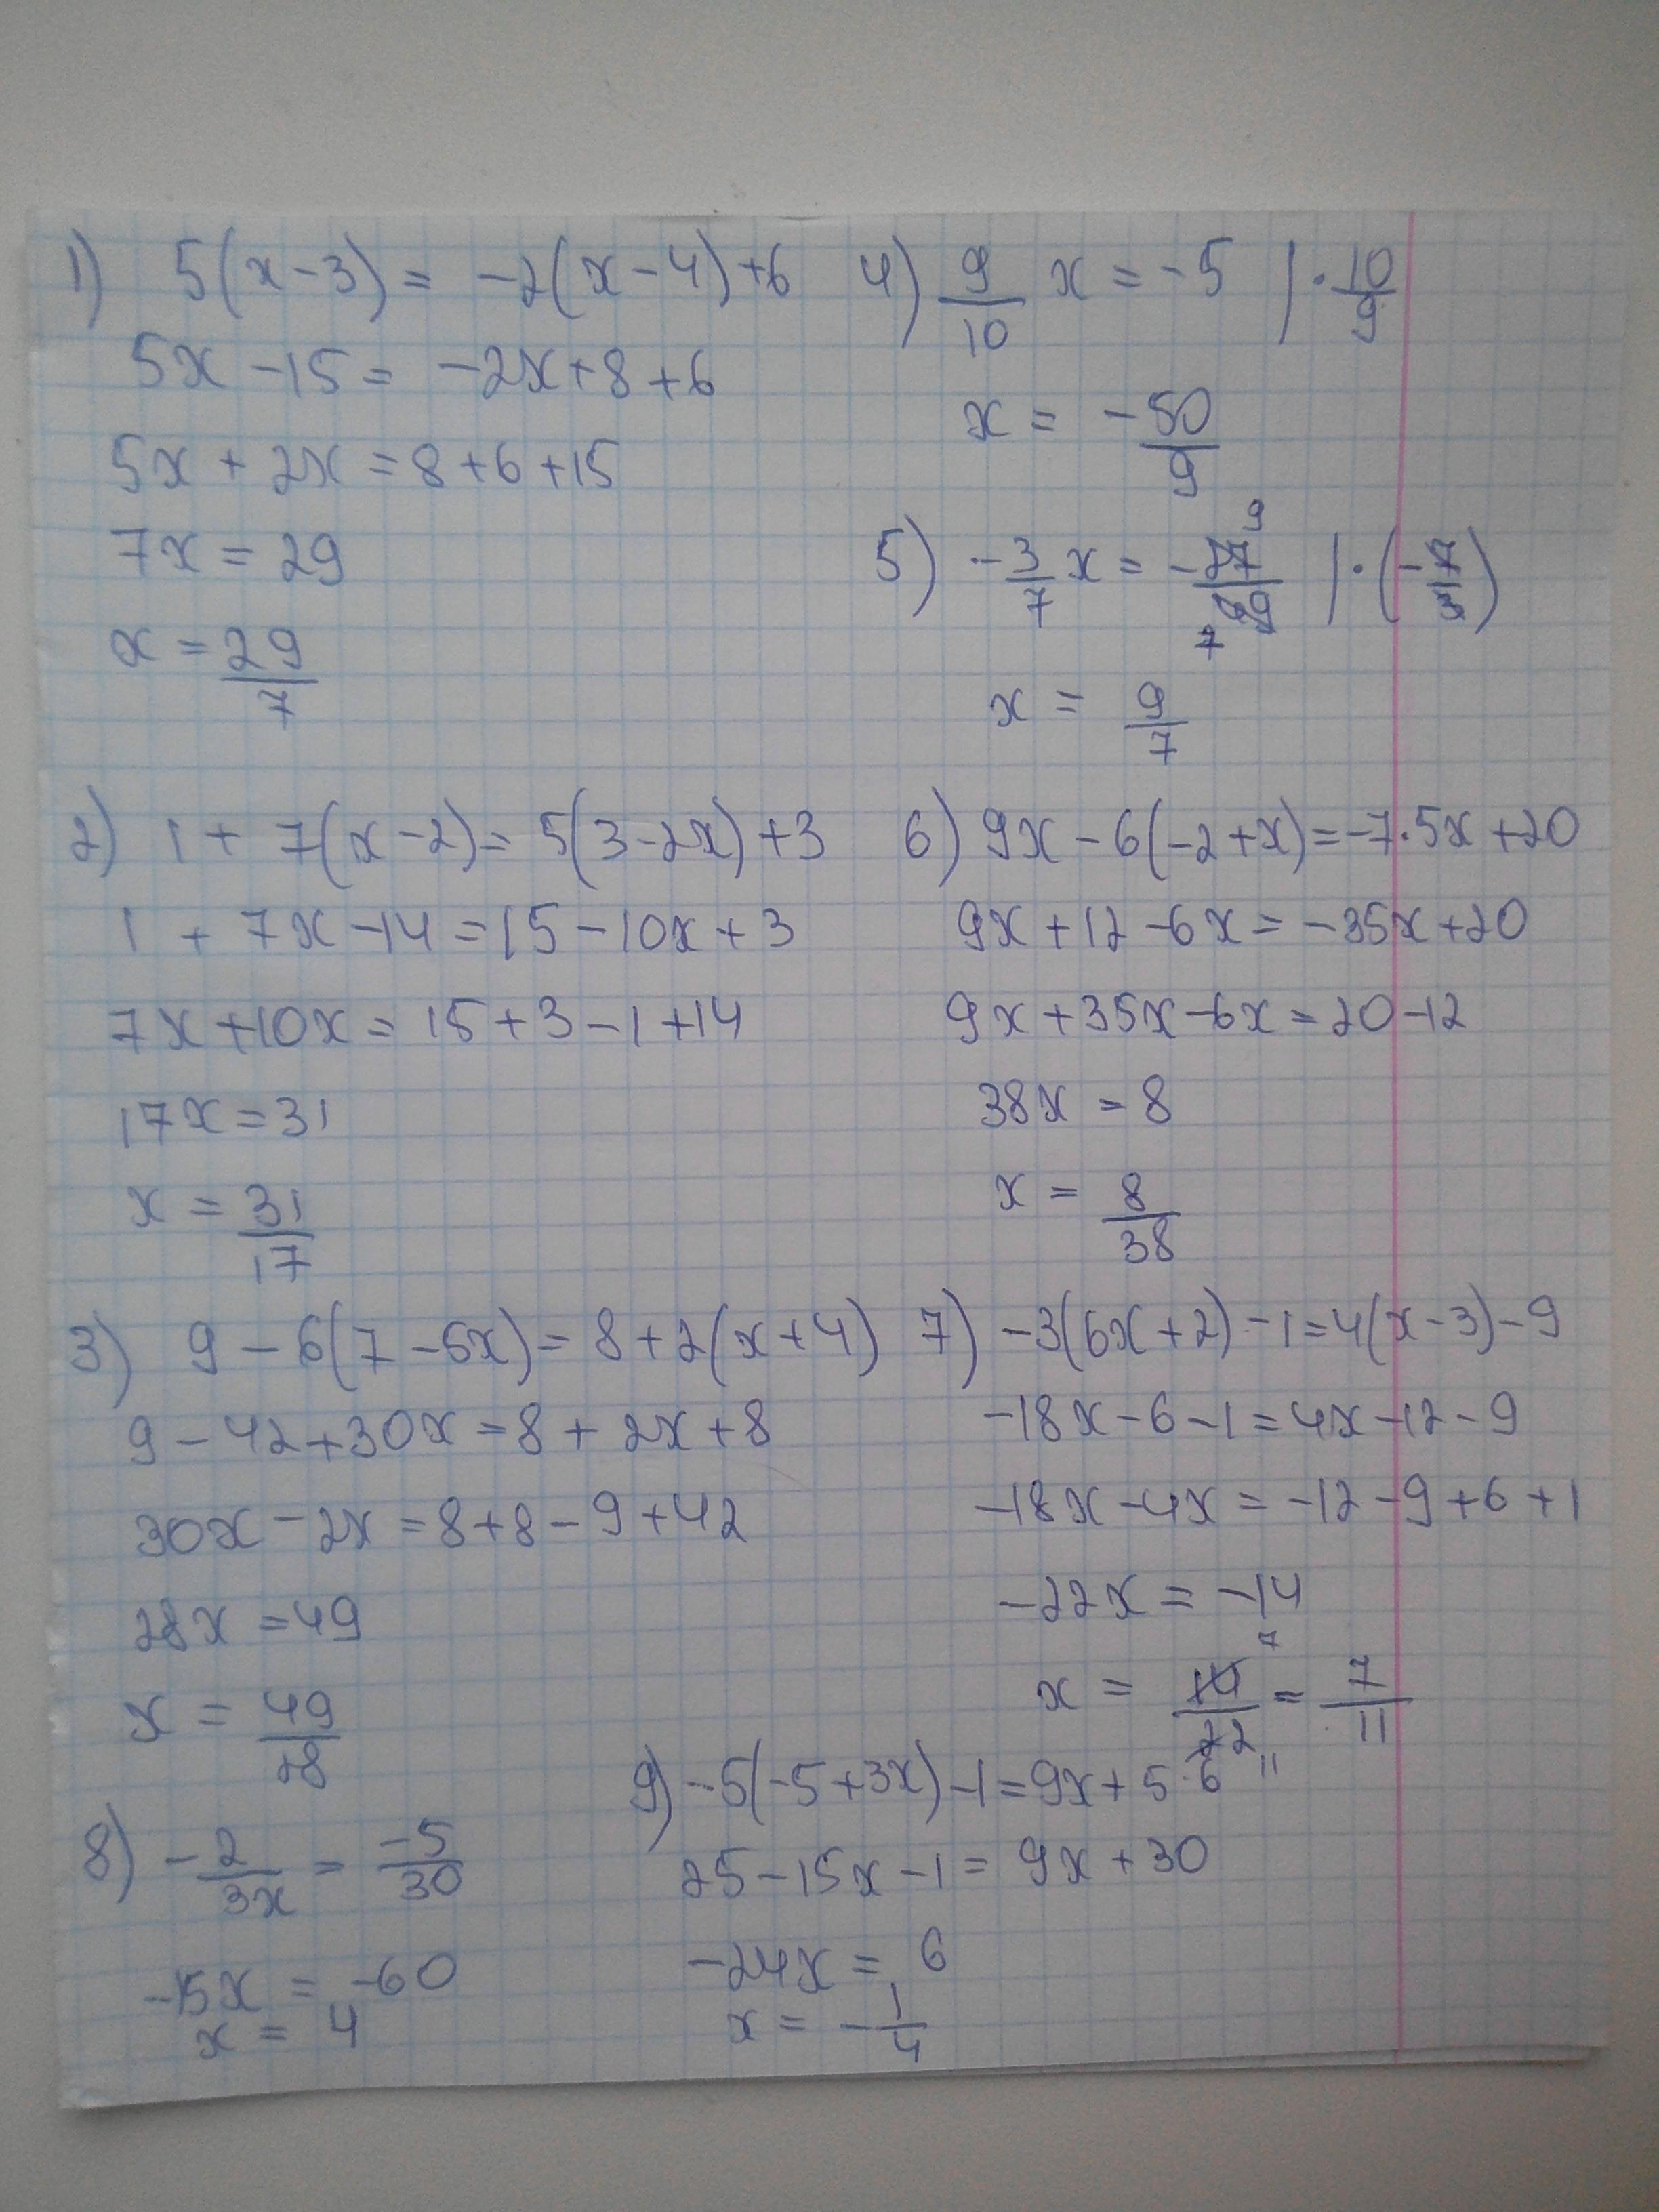 1) 5(x-3)= -2(x-4)+6
5x-15= -2x+8+6
5x+2x=8+6+15
7x=29
x=29/7
2) 1+7(x-2)=5(3-2x)+3
1+7x-14=15-10x+3
7x+10x=15+3-1+14
17x=31
x=31/17
3) 9-6(7-5x)=8+2(x+4)
9-42+30x=8+2x+8
30x-2x=8+8-9+42
28x=49
x=49/28
8) -2/3x = -5/30
-15x = -60
x = 4
4) 9/10 x = -5 | · 10/9
x = -50/9
5) -3/7 x = -27/49 | · (-7/3)
9
7
x = 9/7
6) 9x-6(-2+x)=-7·5x+20
9x+12-6x=-35x+20
9x+35x-6x=20-12
38x=8
x=8/38
7) -3(6x+2)-1=4(x-3)-9
-18x-6-1=4x-12-9
-18x-4x=-12-9+6+1
-22x=-14
7
x = 14/22 = 7/11
11
9) -5(-5+3x)-1=9x+5·6
25-15x-1=9x+30
-24x=6
x=-1/4